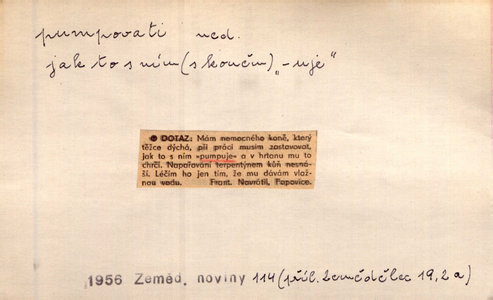 pumpovati ned.
jak to s ním (s koněm) „-uje"
● DOTAZ: Mám nemocného koně, který
těžce dýchá, při práci musím zastavovat,
jak to s ním »pumpuje« a v hrtanu mu to
chrčí. Napařování terpentýnem kůň nesná-
ší. Léčím ho jen tím, že mu dávám vlaž-
nou vodu. Frant. Navrátil, Popovice.
1956 Zeměd. noviny 114 (příl. Zemědělec 19, 2a)